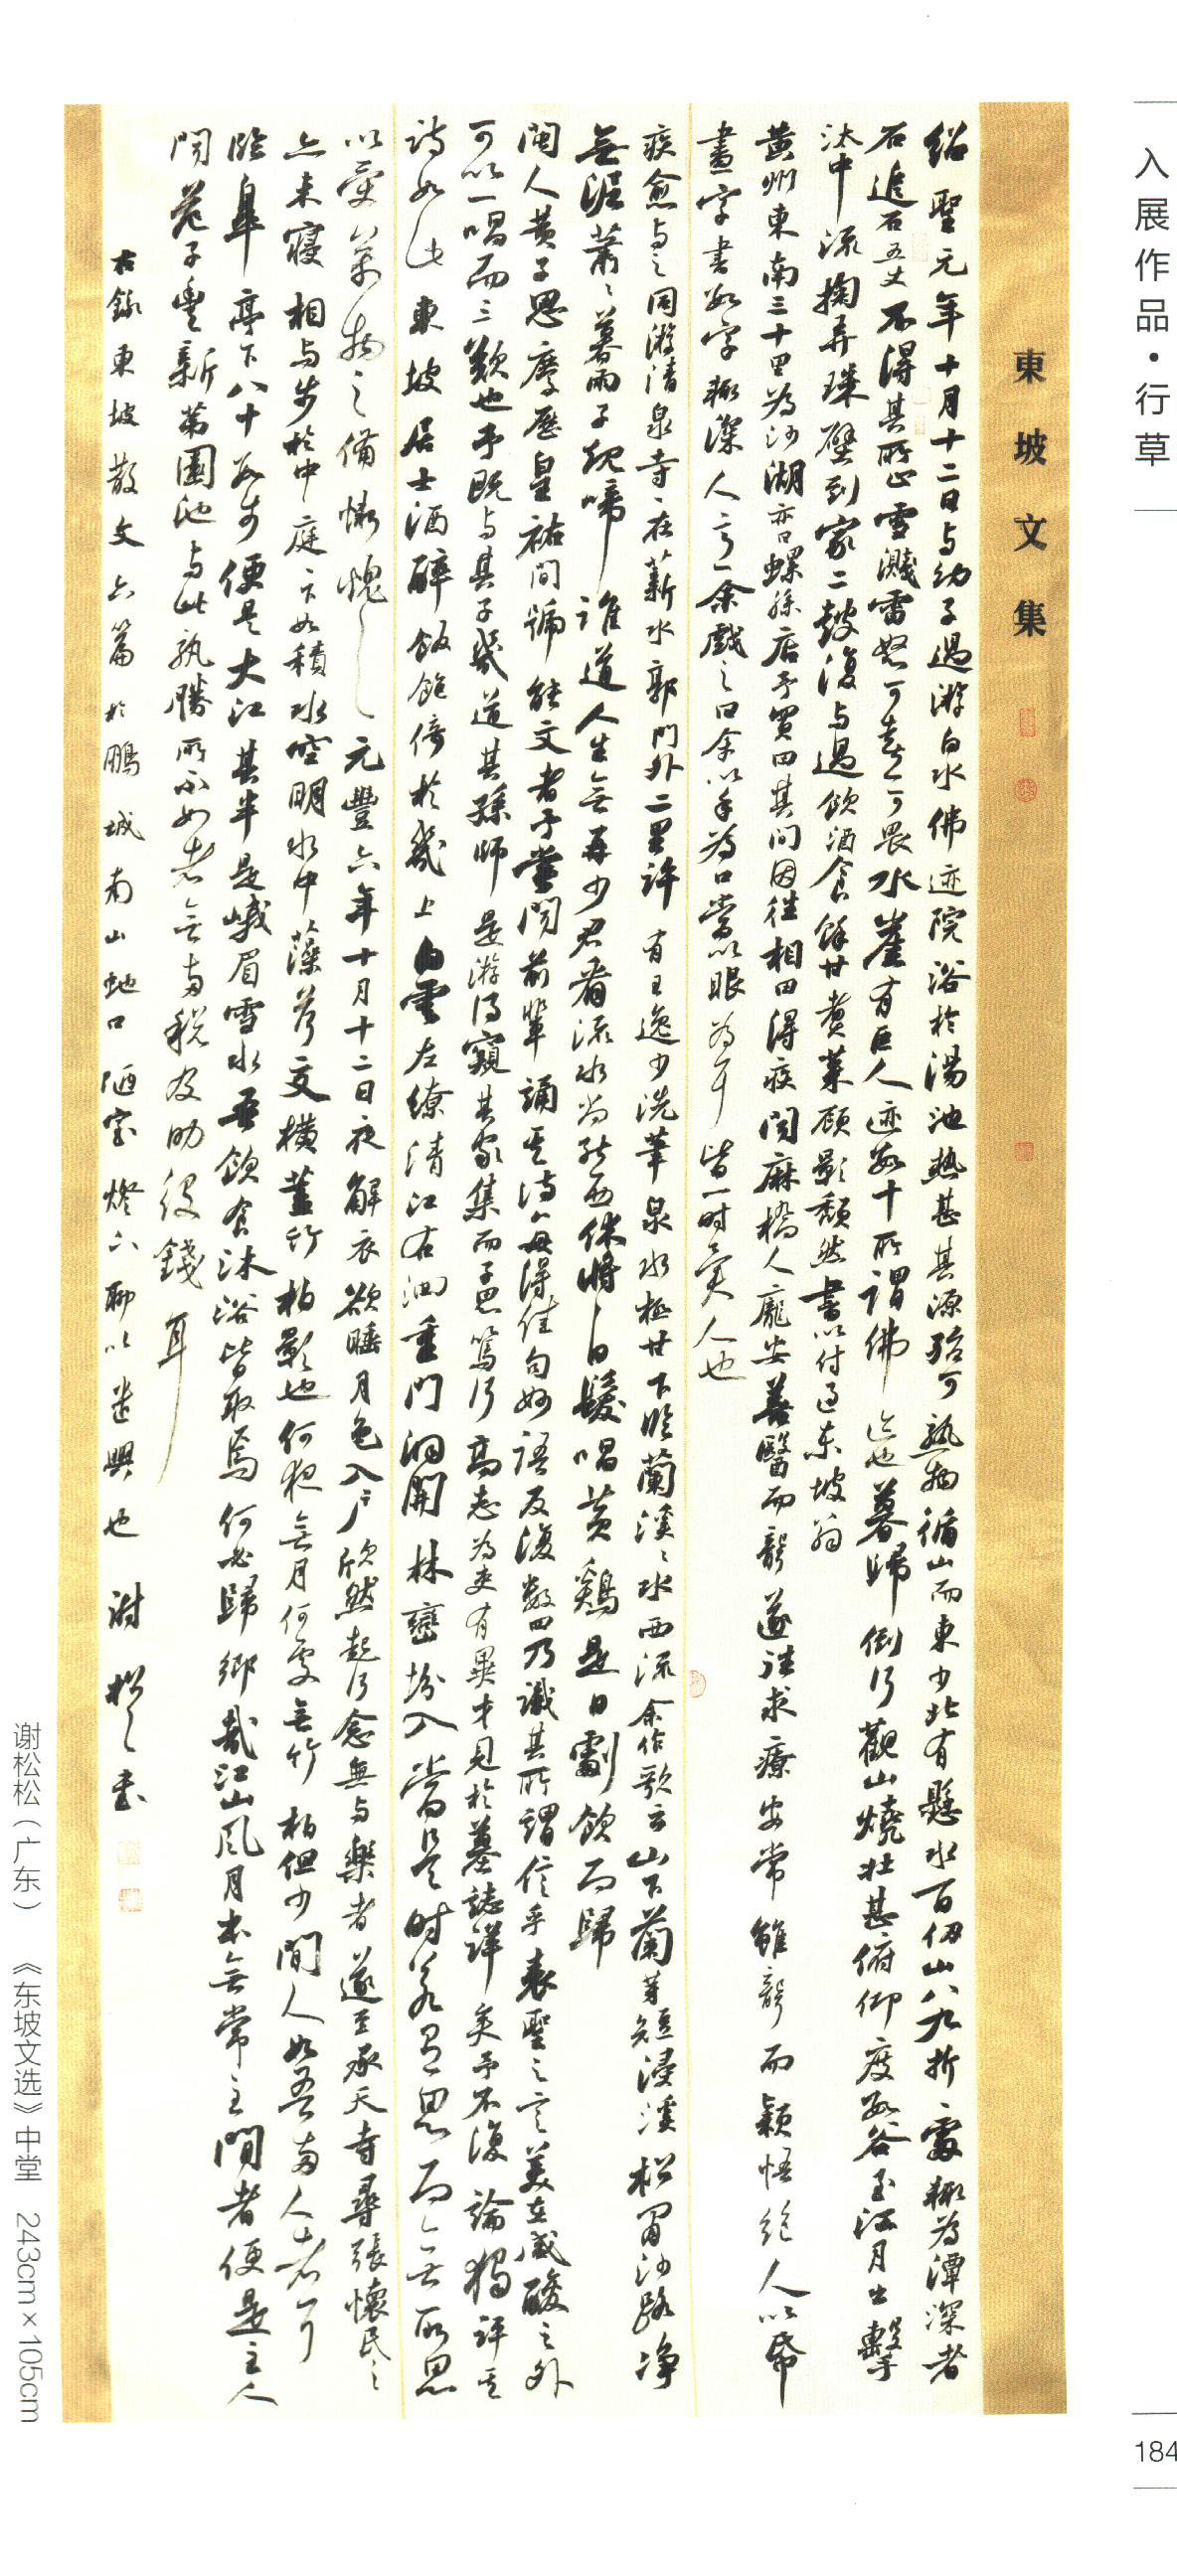 入展作品•行草
東坡文集
紹聖元年十月十二日与幼子過游白水佛迹院浴於湯池熱甚其源殆可熟物循山而東少北有懸水百仞山八九折折處輒為潭深者
石追石五丈不得其所止雪濺雷怒可喜可畏水崖有巨人迹數十所謂佛迹也暮歸倒行觀山燒壮甚俯仰度數谷至江月出擊
汰中流掬弄珠璧到家二鼓復与過飲酒食餘甘煮菜顧影頹然書以付過東坡翁
黄州東南三十里為沙湖亦曰螺師店予買田其间因往相田得疾闻麻橋人龐安善醫而聾遂往求療安常雖聾而穎悟絕人以紙
畫字書數字輒深人意余戲之曰余以手為口當以眼為耳皆一时異人也
疾愈与之同游清泉寺在蘄水郭門外二里許有王逸少洗筆泉水極甘下臨蘭溪溪水西流余作歌云山下蘭芽短浸溪松间沙路净
無泥蕭蕭暮雨子規啼誰道人生無再少君看流水尚能西休將白髮唱黄鷄是日劇飲而歸
閩人黄子思慶歷皇祐間號能文者予嘗闻前輩誦其诗每得佳句妙語反復數四乃識其所謂信乎表聖之言美在咸酸之外
可以一唱而三歎也予既与其子幾道其孫師是游得窺其家集而子思篤行高志為吏有異才見於墓誌詳矣予不復論獨評其
诗如此東坡居士酒醉飯飽倚於幾上白雲左繚清江右洄重門洞開林巒坌入當是时若有思而無所思
以受萬物之備慚愧元豐六年十月十二日夜解衣欲睡月色入户欣然起行念無与樂者遂至承天寺尋張懷民民
亦未寢相与步於中庭下如積水空明水中藻荇交横蓋竹柏影也何夜無月何處無竹柏但少閒人如吾兩人者耳
臨皋亭下八十數步便是大江其半是峨眉雪水吾飲食沐浴皆取焉何必歸鄉哉江山風月本無常主閒者便是主人
闻范子豐新第園池与此孰勝所不如者無兩税及助役錢耳
右錄東坡散文六篇於鵬城南山蛇口陋室燈下聊以遣興也謝松松書
谢松松（广东） 《东坡文选》中堂 243cm×105cm
184